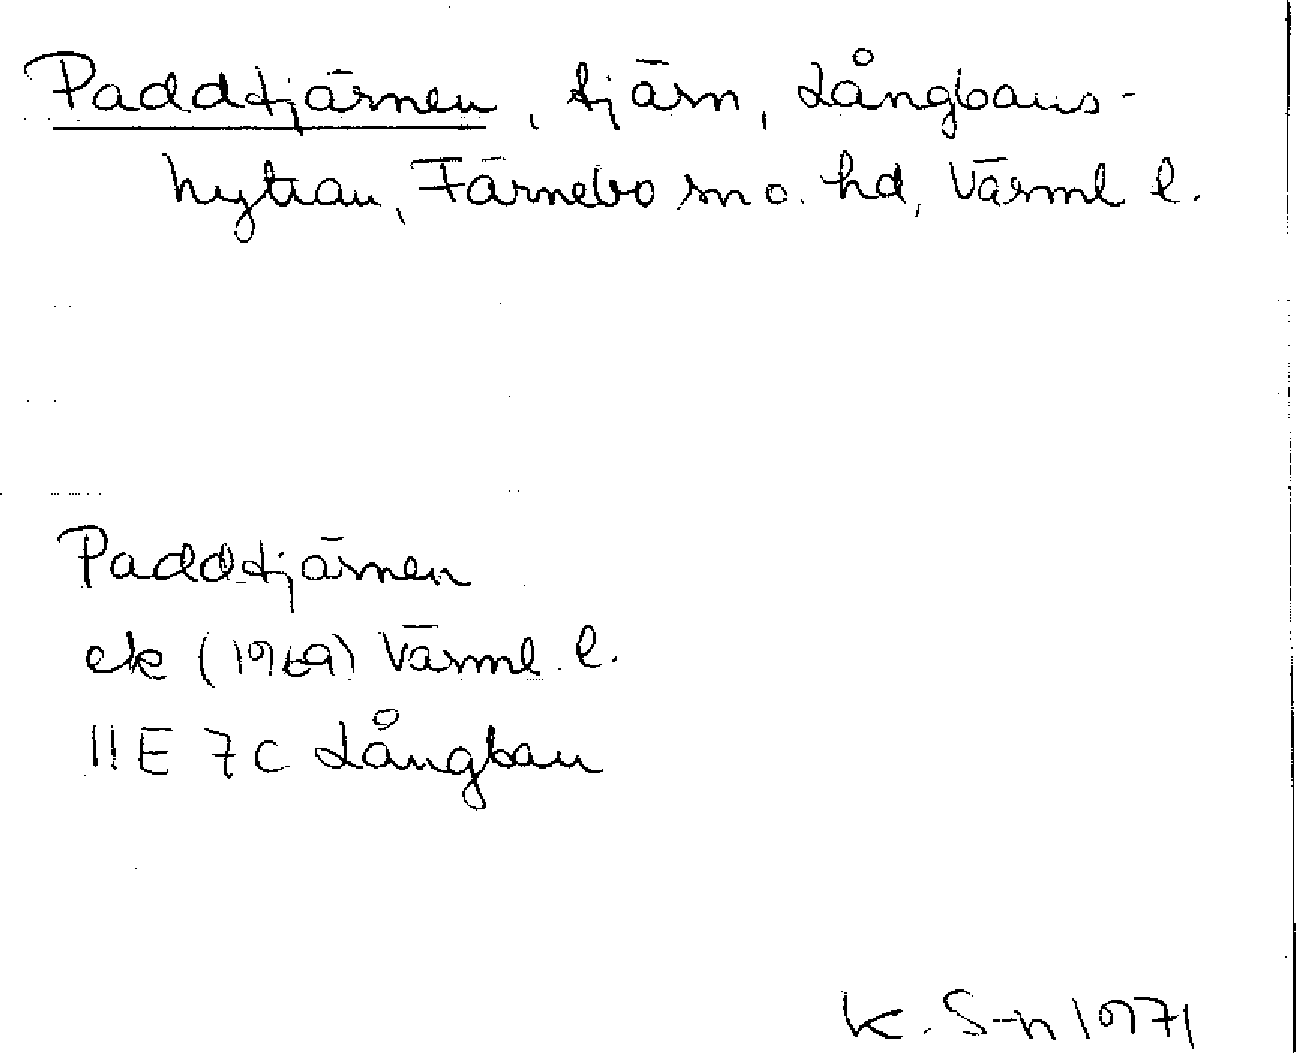 Paddtjärnen, tjärn, Långbans-
hyttan, Färnebo sn o. hd, Värml l.
Paddtjärnen
ek (1969) Värml. l.
11E 7C Långban
K. S-n 1971